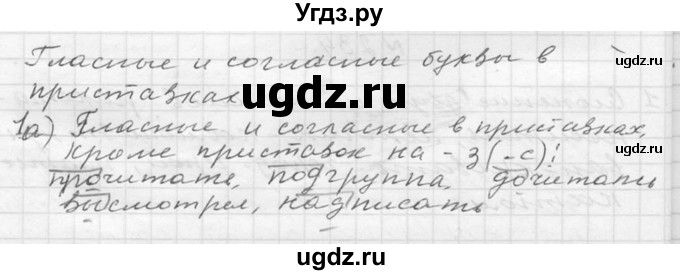 Угдз.ру
Гласные и согласные буквы в
приставках
ugdz.ru
1а) Гласные и согласные в приставках,
кроме приставок на -з(-с)!
прочитать, подгруппа, дочитать
высмотрел, надписать
ugdz.ru